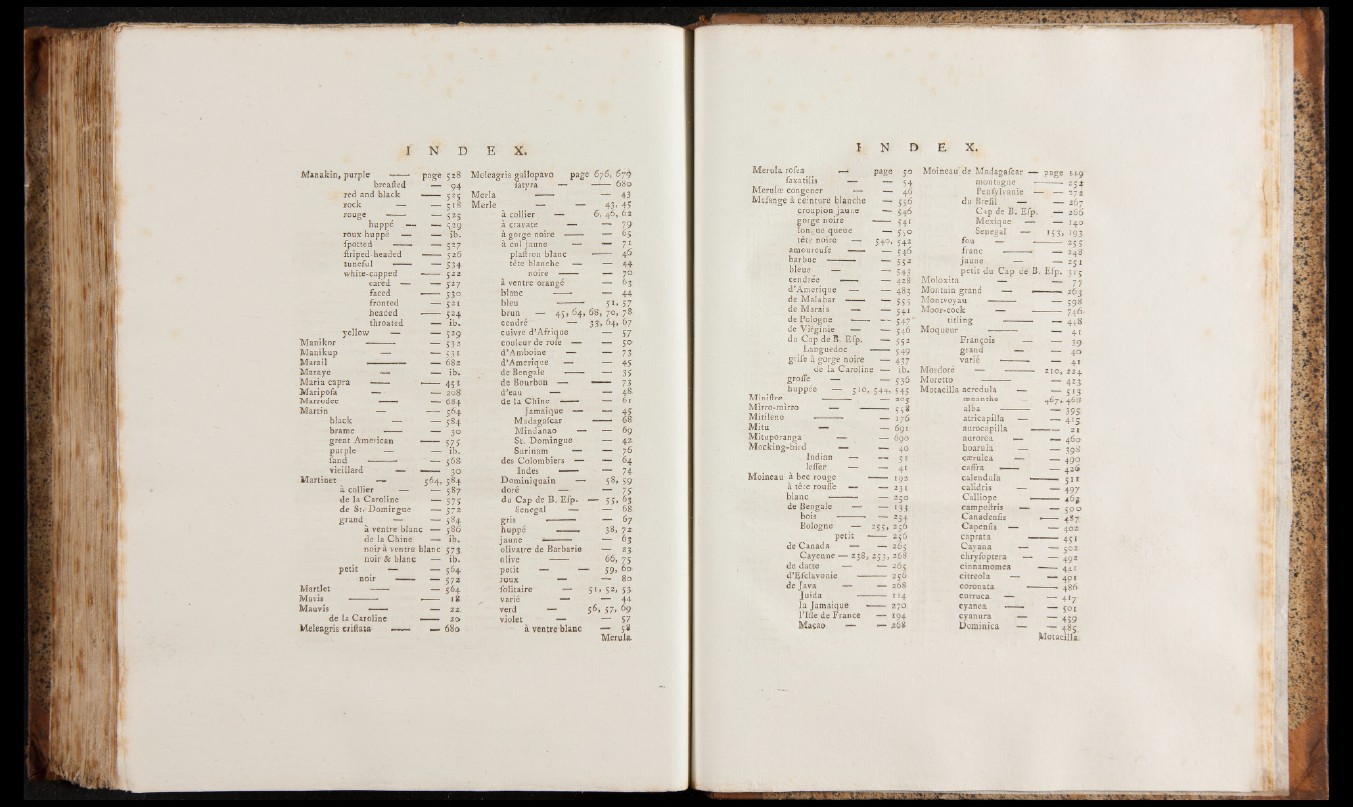 I N D E X.
Manakin, purple —— page 528
breaſted — 94
red and black —— 525
rock — — 518
rouge —— — 525
huppé — — 529
roux huppé — — ib.
ſpotted —— — 527
ſtriped-headed —— 526
tuneful —— — 534
white-capped —— 522
eared — — 527
faced —— 530
fronted — 521
headed —— 524
throated — ib.
yellow — — 529
Manikor —— — 532
Manikup — — 531
Marail —— — 682
Maraye — — ib.
Maria capra —— —— 451
Maripoſa — — 208
Marrodee —— — 684
Martin — — 564
black — — 584
brame —— — 30
great American —— 575
purple — — ib.
ſand —— — 568
vieillard — —— 30
Martinet — 564, 584
à collier — — 587
de la Caroline — 575
de St. Domirgue — 572
grand — — 584
à ventre blanc — 586
de la Chine — ib.
noir à ventre blanc 573
noir & blanc — ib.
petit — — 564
noir —— — 572
Martlet —— — 564
Mavis —— —— 18
Mauvis —— — 22
de la Caroline —— 20
Meleagris criſtata —— — 680
Meleagris gallopavo page 676, 679
ſatyra — —— 680
Merla —— — 43
Merle — — 43, 45
à collier — 6, 46, 62
à cravate — — 79
à gorge noire —— — 65
à cul jaune — — 71
plaſtron blanc —— 46
tête blanche — — 44
noire —— — 70
à ventre orangé — 63
blanc —— — 44
bleu —— 51, 57
brun — 45, 64, 68, 70, 78
cendré — 33, 64, 67
cuivre d'Afrique — 57
couleur de roſe — — 50
d'Amboine — — 73
d'Amerique — — 45
de Bengale —— — 35
de Bourbon — —— 73
d'eau — — 48
de la Chine —— — 61
Jamaique — — 45
Madagaſcar —— 68
Mindanao — — 69
St. Domingue — 42
Surinam — — 76
des Colombiers — — 64
Indes —— — 74
Dominiquain — 58, 59
doré — — 75
du Cap de B. Eſp. — 55, 63
Senegal — — 68
gris —— — 67
huppé —— 38, 72
jaune —— — 63
olivatre de Barbarie — 23
olive —— 66, 75
petit — — 59, 60
roux — — 80
ſolitaire — 51, 52, 53
varié — — 44
verd — 56, 57, 69
violet — — 57
à ventre blanc — 58
Merula
I N D E X.
Merula roſea — page 50
ſaxatilis — — 54
Merulæ congener — — 46
Méſange à ceinture blanche — 556
croupion jaune — 546
gorge noire —— 541
longue queue — 550
tête noire — 540, 542
amoureuſe —— — 546
barbue —— — 552
bleue — — 543
cendrée —— — 428
d'Amerique — — 483
de Malabar —— — 555
de Marais — — 541
de Pologne —— — 547
de Virginie — — 546
du Cap de B. Eſp. — 552
Languedoc —— 549
griſe à gorge noire — 437
de la Caroline — ib.
groſſe — — 536
huppée — 510, 544, 545
Miniſtre —— — 205
Mirro-mirro — —— 558
Mitileno —— — 176
Mitu — — 691
Mituporanga — — 690
Mocking-bird — — 40
Indian — — 51
leſſer — — 41
Moineau à bec rouge —— 192
à tête rouſſe — — 231
blanc —— — 250
de Bengale — — 133
bois —— — 234
Bologne — 255, 256
petit —— 256
de Canada — — 265
Cayenne — 238, 253, 268
de datte — — 265
d'Eſclavonie —— 256
de Java — — 268
Juida —— 114
la Jamaique —— 270
l'Iſle de France — 194
Maçao — — 268
Moineau de Madagaſcar — page 119
montagne —— 252
Penſylvanie — — 272
du Breſil — — 267
Cap de B. Eſp. — 266
Mexique — — 140
Senegal — 153, 193
fou — —— 255
franc —— — 248
jaune — — 251
petit du Cap de B. Eſp. 315
Moloxita — — 77
Montain grand — —— 263
Montvoyau —— — 598
Moor-cock — —— 746
titling —— — 448
Moqueur —— — 41
François — — 39
grand — — 40
varié —— — 41
Mordoré — —— 210, 224
Moretto —— — 423
Motacilla aeredula — — 513
œnanthe — 467, 468
alba —— — 395
atricapilla — — 415
aurocapilla —— 21
aurorea — — 460
boarula — — 398
cærulea — — 490
caffra —— — 426
calendula —— 511
calidris — — 497
Calliope —— 463
campeſtris — — 500
Canadenſis —— 487
Capenſis — — 402
caprata —— 451
Cayana — — 502
chryſoptera — — 492
cinnamomea —— 421
citreola — — 401
coronata —— 486
curruca — — 417
cyanea —— — 501
cyanura — — 459
Dominica — — 485
Motacilla